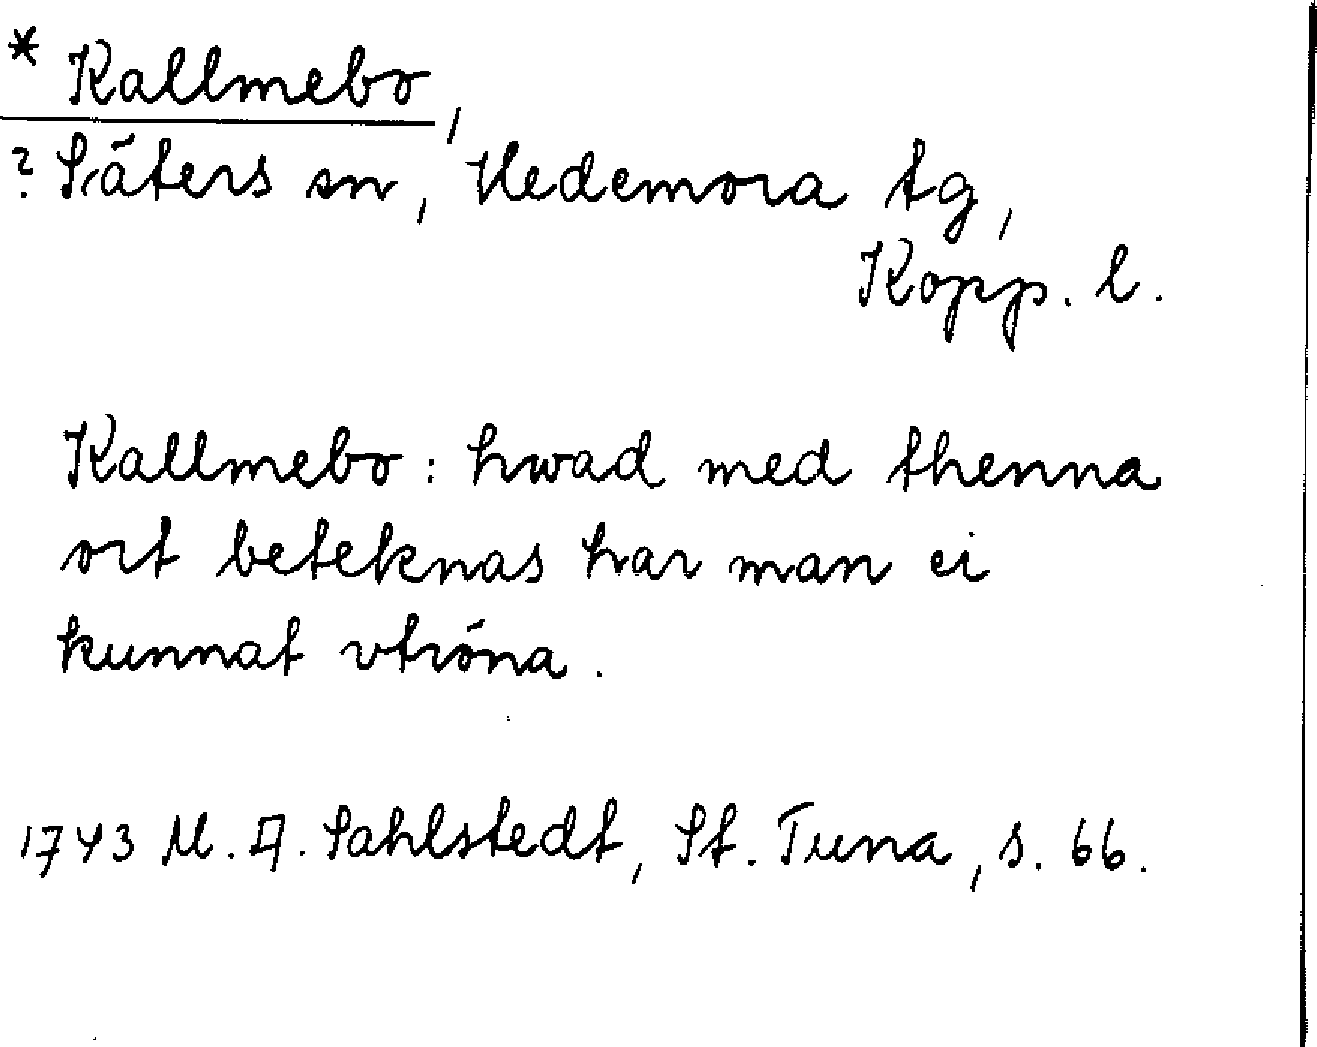 * Kallmebo,
? Säters sn, Hedemora tg,
Kopp. l.
Kallmebo: hwad med thenna
ort beteknas har man ei
kunnat vtröna.
1743 M. A. Sahlstedt, St. Tuna, s. 66.